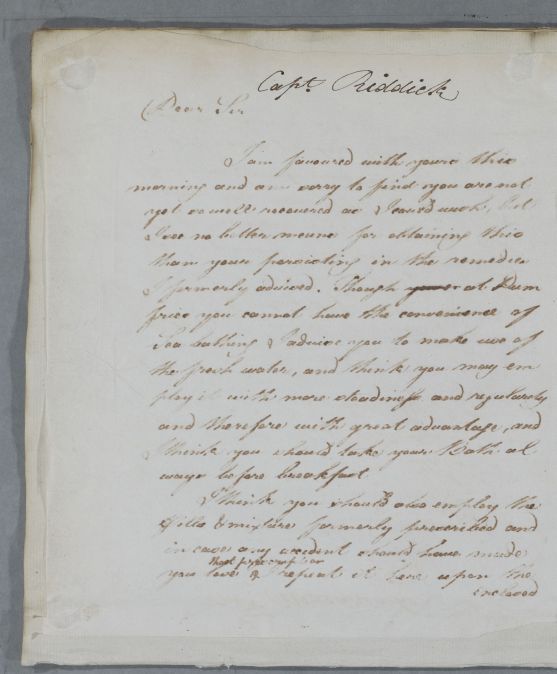 Capt Riddick
Dear Sir
I am favoured with yours this
morning and am sorry to find you are not
yet so well recovered as I could wish, but
I see no better means for obtaining this
than your persisting in the remedies
I formerly advised. Though at Dum
fries you cannot have the convenience of
Sea bathing I advise you to make use of
the fresh water, and think you may em
ploy it with more steadiness and regularity
and therefore with great advantage, and
I think you should take your Bath al
ways before breakfast
I think you should also employ the
Pills & mixture formerly prescribed and
in case any accident should have made
that prescription
you lose I repeat it here upon the
enclosed